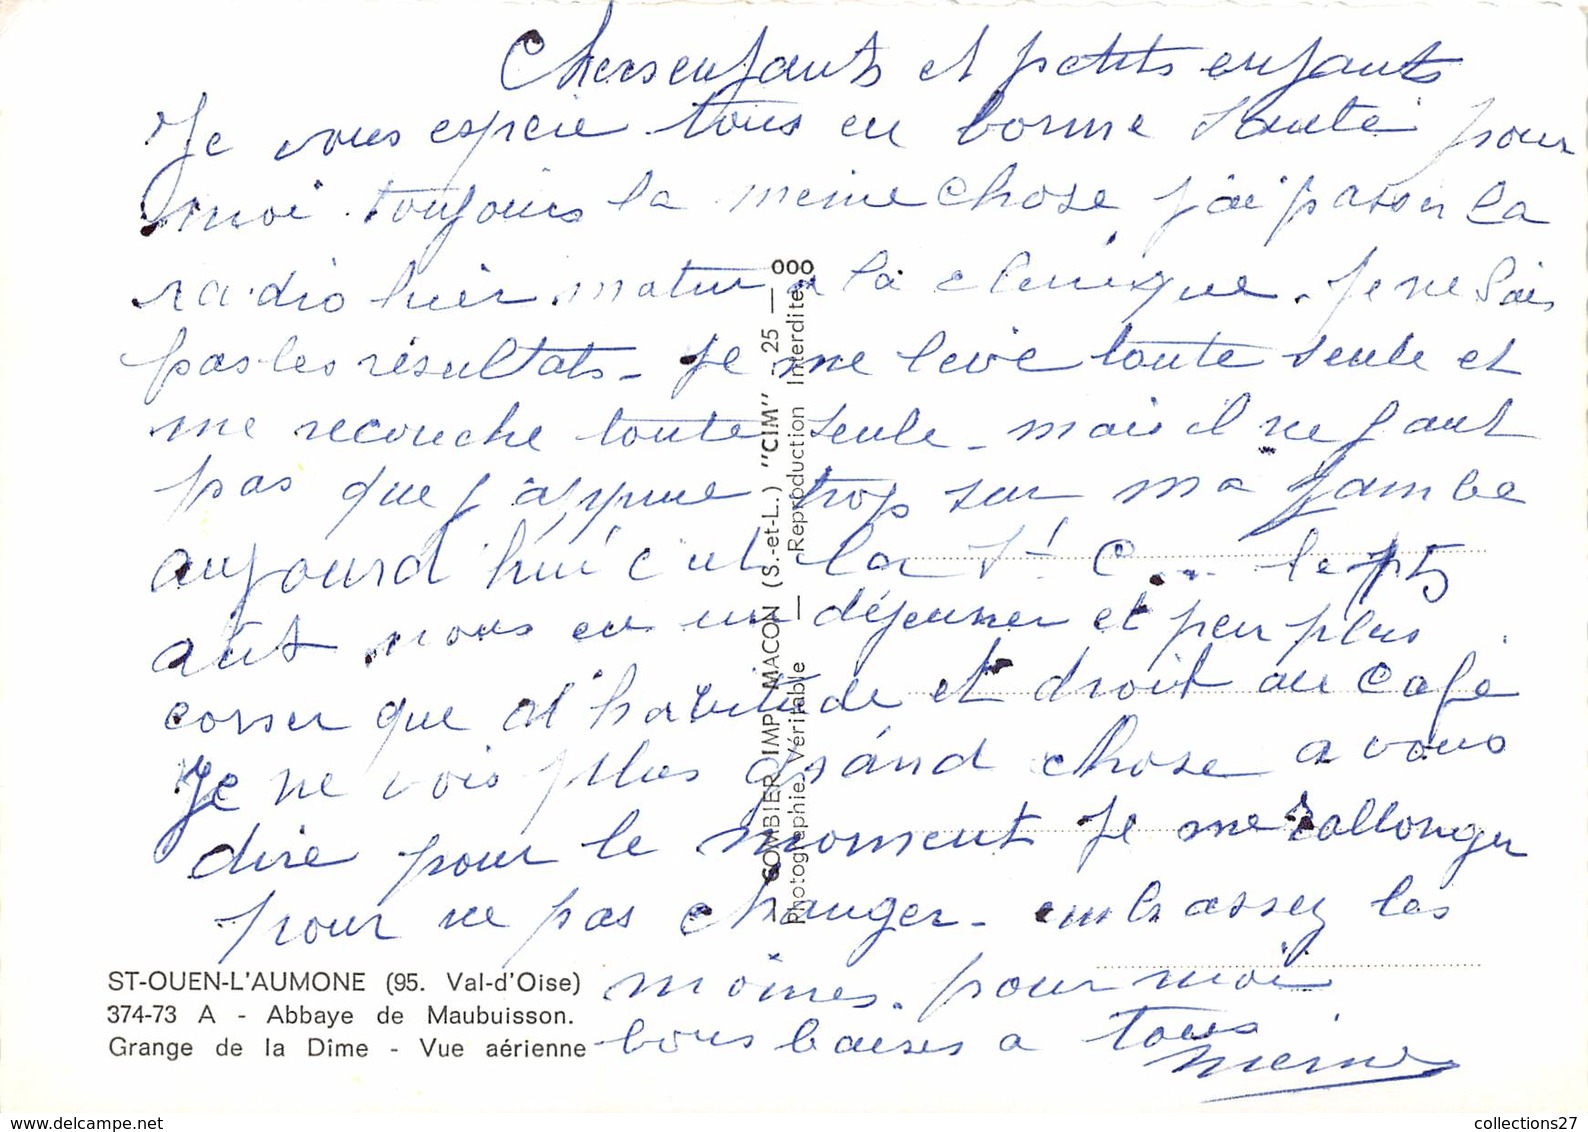 Chers enfants et petits enfants
Je vous espere tous en bonne Sante pour
moi toujours la meme chose j'ai passer la
radio hier matin a la clinique. Je ne Sais
pas les résultats - Je me leve toute seule et
me recouche toute seule - mais il ne faut
pas que j'appuie trop sur ma jambe
aujourd'hui c'est la St C... le 15
aout nous eu un déjeuner et peu plus
corser que d'habitude et droit au Café
Je ne vois plus grand chose a vous
dire pour le moment Je me rallonger
pour ne pas changer - embrassez les
moines. pour moi
bons baises a tous
meme
ST-OUEN-L'AUMONE (95. Val-d'Oise)
374-73 A - Abbaye de Maubuisson.
Grange de la Dîme - Vue aérienne
COMBIER IMP. MACON (S.-et-L.) "CIM" - 25 - 000
Photographie Véritable — Reproduction Interdite
collections27